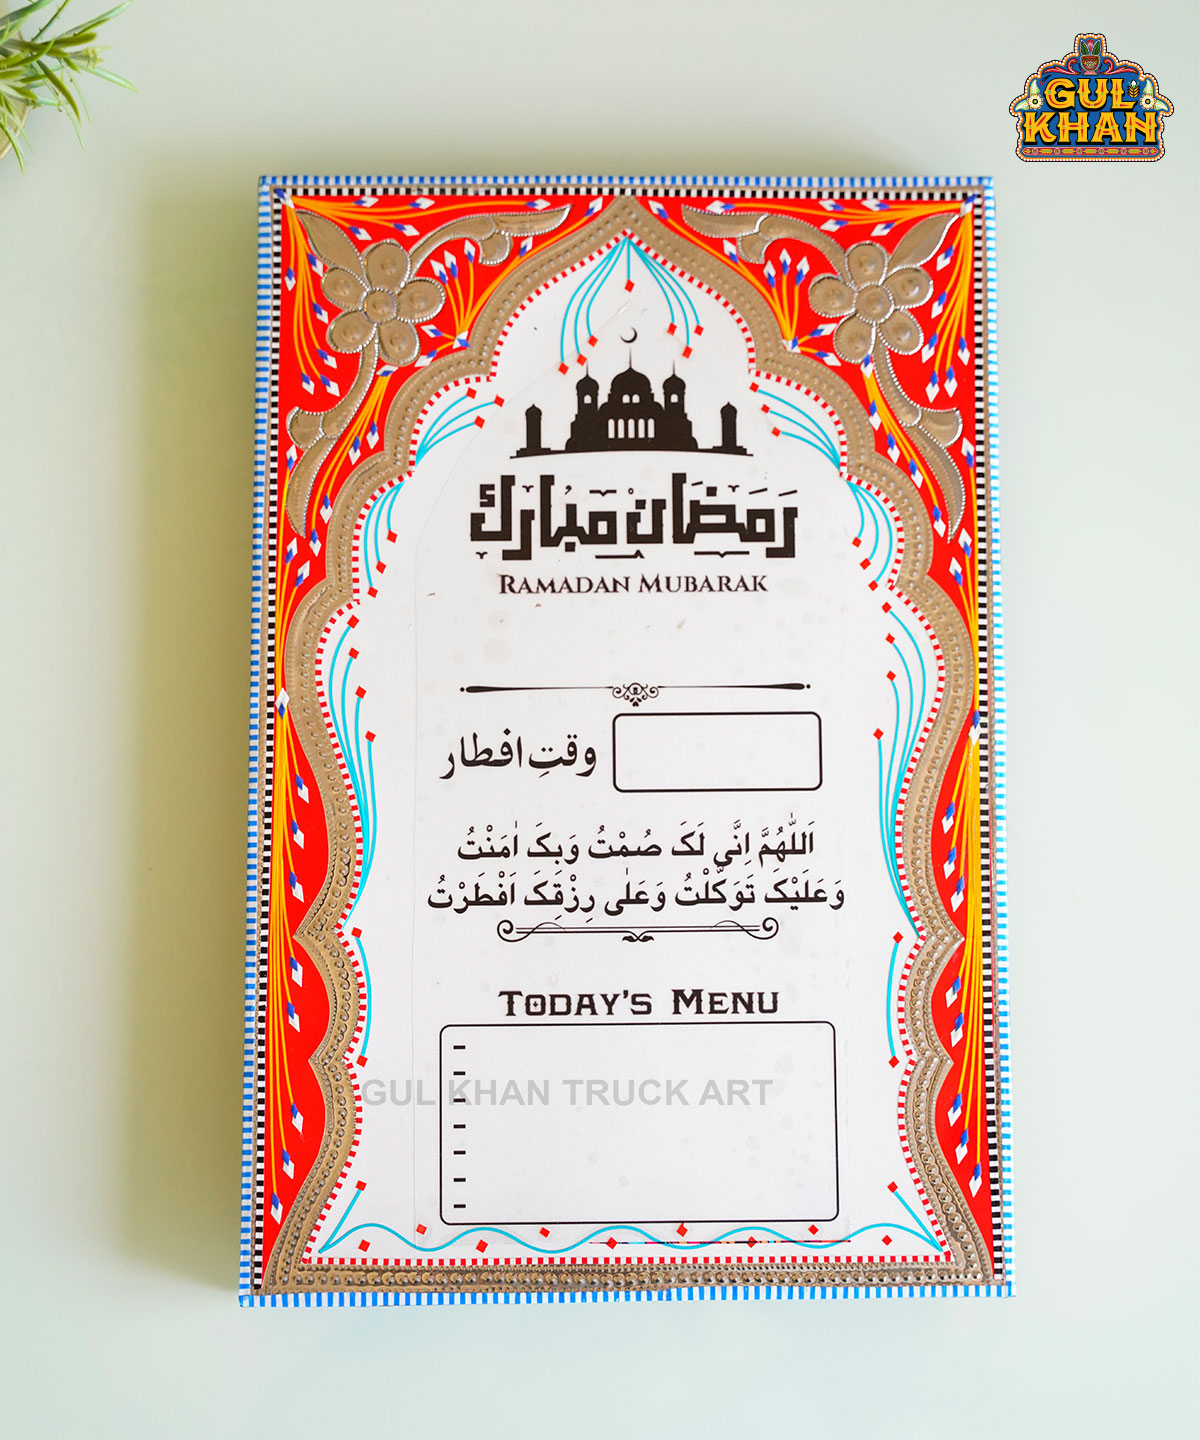 GUL
KHAN
رَمَضَان مُبارك
RAMADAN MUBARAK
وقتِ افطار
اَللّٰهُمَّ اِنَّی لَکَ صُمْتُ وَبِکَ اٰمَنْتُ
وَعَلَيْکَ تَوَکَّلْتُ وَعَلٰی رِزْقِکَ اَفْطَرْتُ
TODAY'S MENU
-
-
GUL KHAN TRUCK ART
-
-
-
-
-